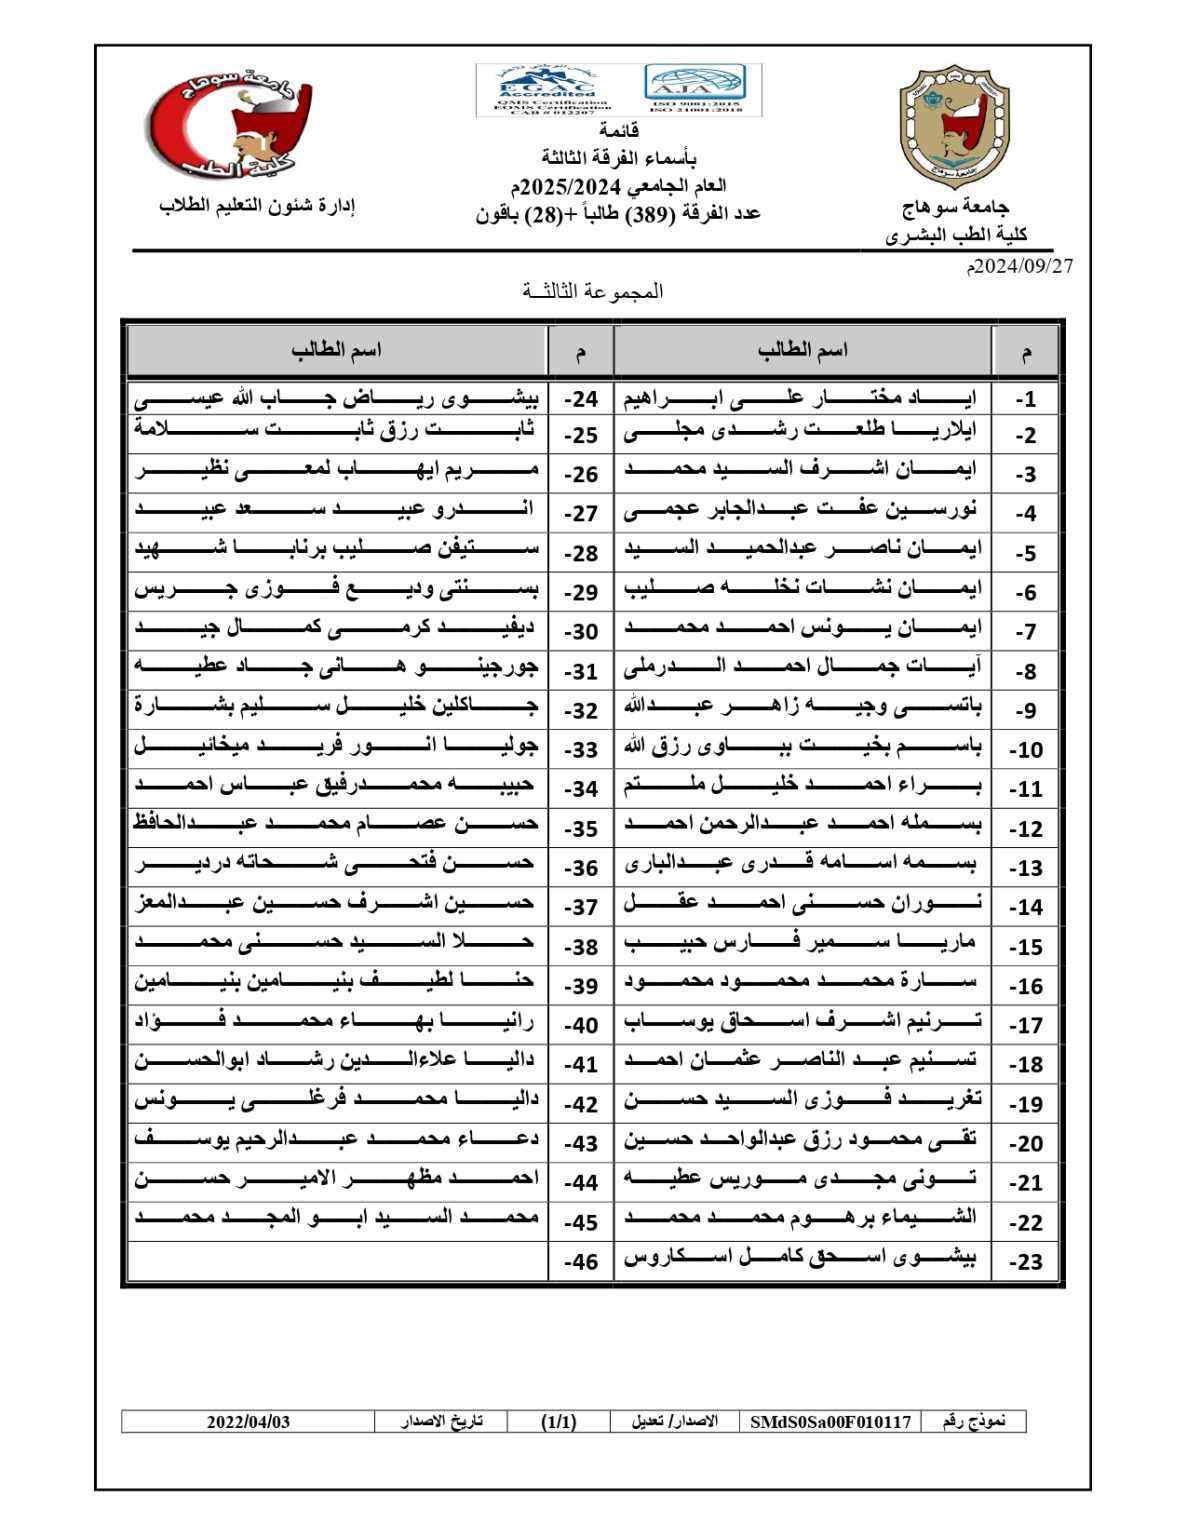 جامعة سوهاج
كلية الطب
إدارة شئون التعليم الطلاب
المجلس الوطني للاعتماد
EGAC
Accredited
QMS Certification
EOMS Certification
CAB # 012207
AJA
ISO 9001:2015
ISO 21001:2018
قائمة
بأسماء الفرقة الثالثة
العام الجامعي 2025/2024م
عدد الفرقة (389) طالباً +(28) باقون
جامعة سوهاج
جامعة سوهاج
كلية الطب البشرى
2024/09/27م
المجموعة الثالثة
م اسم الطالب م اسم الطالب
1- اياد مختار على ابراهيم 24- بيشوى رياض جاب الله عيسى
2- ايلاريا طلعت رشدى مجلى 25- ثابت رزق ثابت سلامة
3- ايمان اشرف السيد محمد 26- مريم ايهاب لمعى نظير
4- نورسين عفت عبدالجابر عجمى 27- اندرو عبيد سعد عبيد
5- ايمان ناصر عبدالحميد السيد 28- ستيفن صليب برنابا شهيد
6- ايمان نشات نخله صليب 29- بسنتى وديع فوزى جريس
7- ايمان يونس احمد محمد 30- ديفيد كرمى كمال جيد
8- آيات جمال احمد الدرملى 31- جورجينو هانى جاد عطيه
9- باتسى وجيه زاهر عبدالله 32- جاكلين خليل سليم بشارة
10- باسم بخيت بباوى رزق الله 33- جوليا انور فريد ميخائيل
11- براء احمد خليل ملتم 34- حبيبه محمدرفيق عباس احمد
12- بسمله احمد عبدالرحمن احمد 35- حسن عصام محمد عبدالحافظ
13- بسمه اسامه قدرى عبدالبارى 36- حسن فتحى شحاته دردير
14- نوران حسنى احمد عقل 37- حسين اشرف حسين عبدالمعز
15- ماريا سمير فارس حبيب 38- حلا السيد حسنى محمد
16- سارة محمد محمود محمود 39- حنا لطيف بنيامين بنيامين
17- ترنيم اشرف اسحاق يوساب 40- رانيا بهاء محمد فؤاد
18- تسنيم عبد الناصر عثمان احمد 41- داليا علاءالدين رشاد ابوالحسن
19- تغريد فوزى السيد حسن 42- داليا محمد فرغلى يونس
20- تقى محمود رزق عبدالواحد حسين 43- دعاء محمد عبدالرحيم يوسف
21- تونى مجدى موريس عطيه 44- احمد مظهر الامير حسن
22- الشيماء برهوم محمد محمد 45- محمد السيد ابو المجد محمد
23- بيشوى اسحق كامل اسكاروس 46-
نموذج رقم SMdS0Sa00F010117 الاصدار/ تعديل (1/1) تاريخ الاصدار 2022/04/03